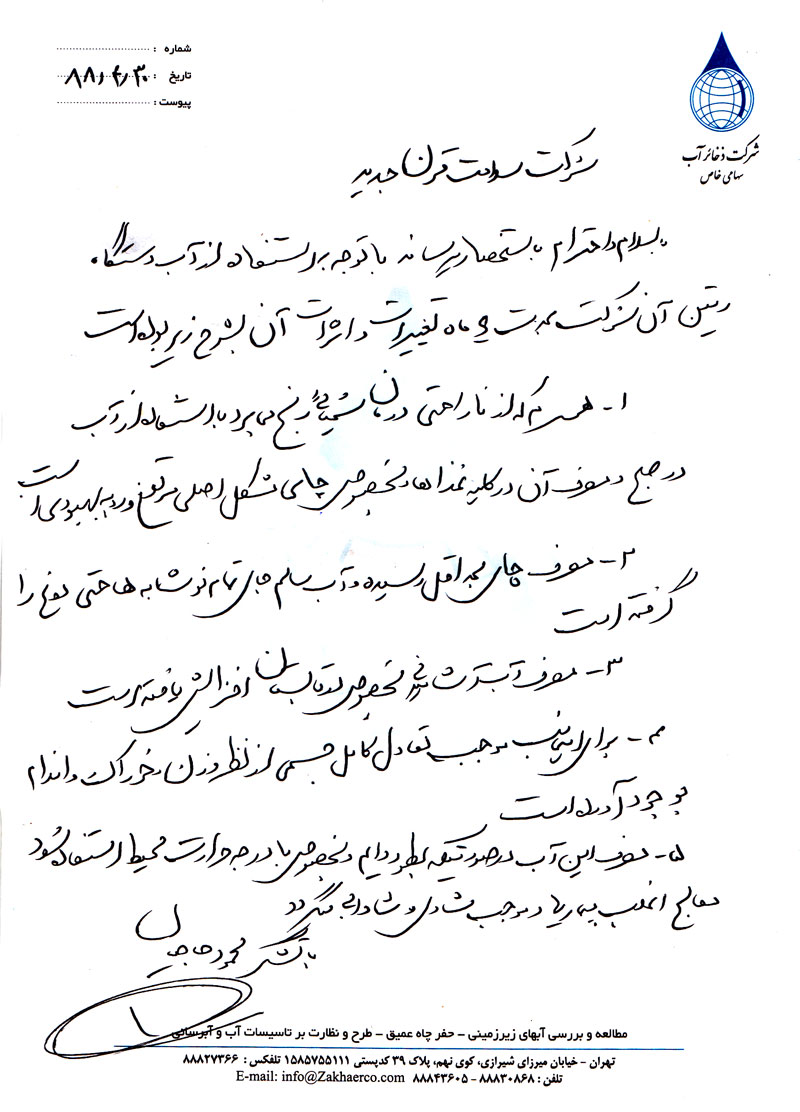 شماره :
تاریخ : ۸۸,۴,۳۰
پیوست :
شرکت ذخائر آب
سهامی خاص
شرکت سلامت قرن جدید
با سلام و احترام باستحضار میرساند با توجه به استفاده از آب دستگاه
آن شرکت بمدت ماه تغییرات و اثرات آن بشرح زیر بوده است
۱- همسرم که از ناراحتی درمان شیمیائی رنج می برد با استفاده از آب
در صبح و مصرف آن در کلیه غذاها و بخصوص چای مشکل اصلی مرتفع و رو به بهبودی است
۲- مصرف چای بحداقل رسیده و آب سالم جای تمام نوشابه ها حتی دوغ را
گرفته است
۳- مصرف آب آشامیدنی بخصوص در تابستان افزایش یافته است
۴- برای اینجانب موجب تعادل کامل جسمی از نظر وزن و خوراک و اندام
بوجود آورده است
۵- مصرف این آب در صورتیکه بطور دایم و بخصوص با درجه حرارت محیط استفاده شود
معالج اغلب بیماریها و موجب شادی و شادابی میگردد
با تشکر محمود
مطالعه و بررسی آبهای زیرزمینی - حفر چاه عمیق - طرح و نظارت بر تاسیسات آب و آبرسانی
تهران - خیابان میرزای شیرازی، کوی نهم، پلاک ۳۹ کدپستی ۱۵۸۵۷۵۵۱۱۱ تلفکس : ۸۸۸۲۷۳۶۶
تلفن : ۸۸۸۳۰۸۶۸ - ۸۸۸۴۳۶۰۵ E-mail: info@Zakhaerco.com